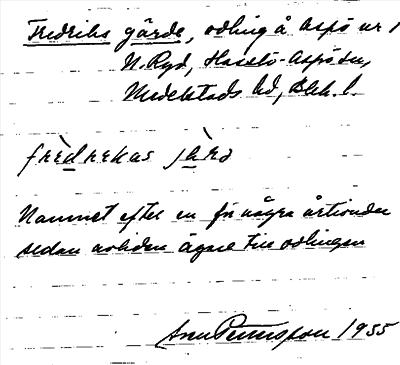 Fredriks gärde, odling å Aspö nr 1
N. Ryd, Hasslö-Aspö sn,
Medelstads hd, Blek. l.
frèdrekas jàrd
Namnet efter en för några årtionden
sedan avliden ägare till odlingen
1955